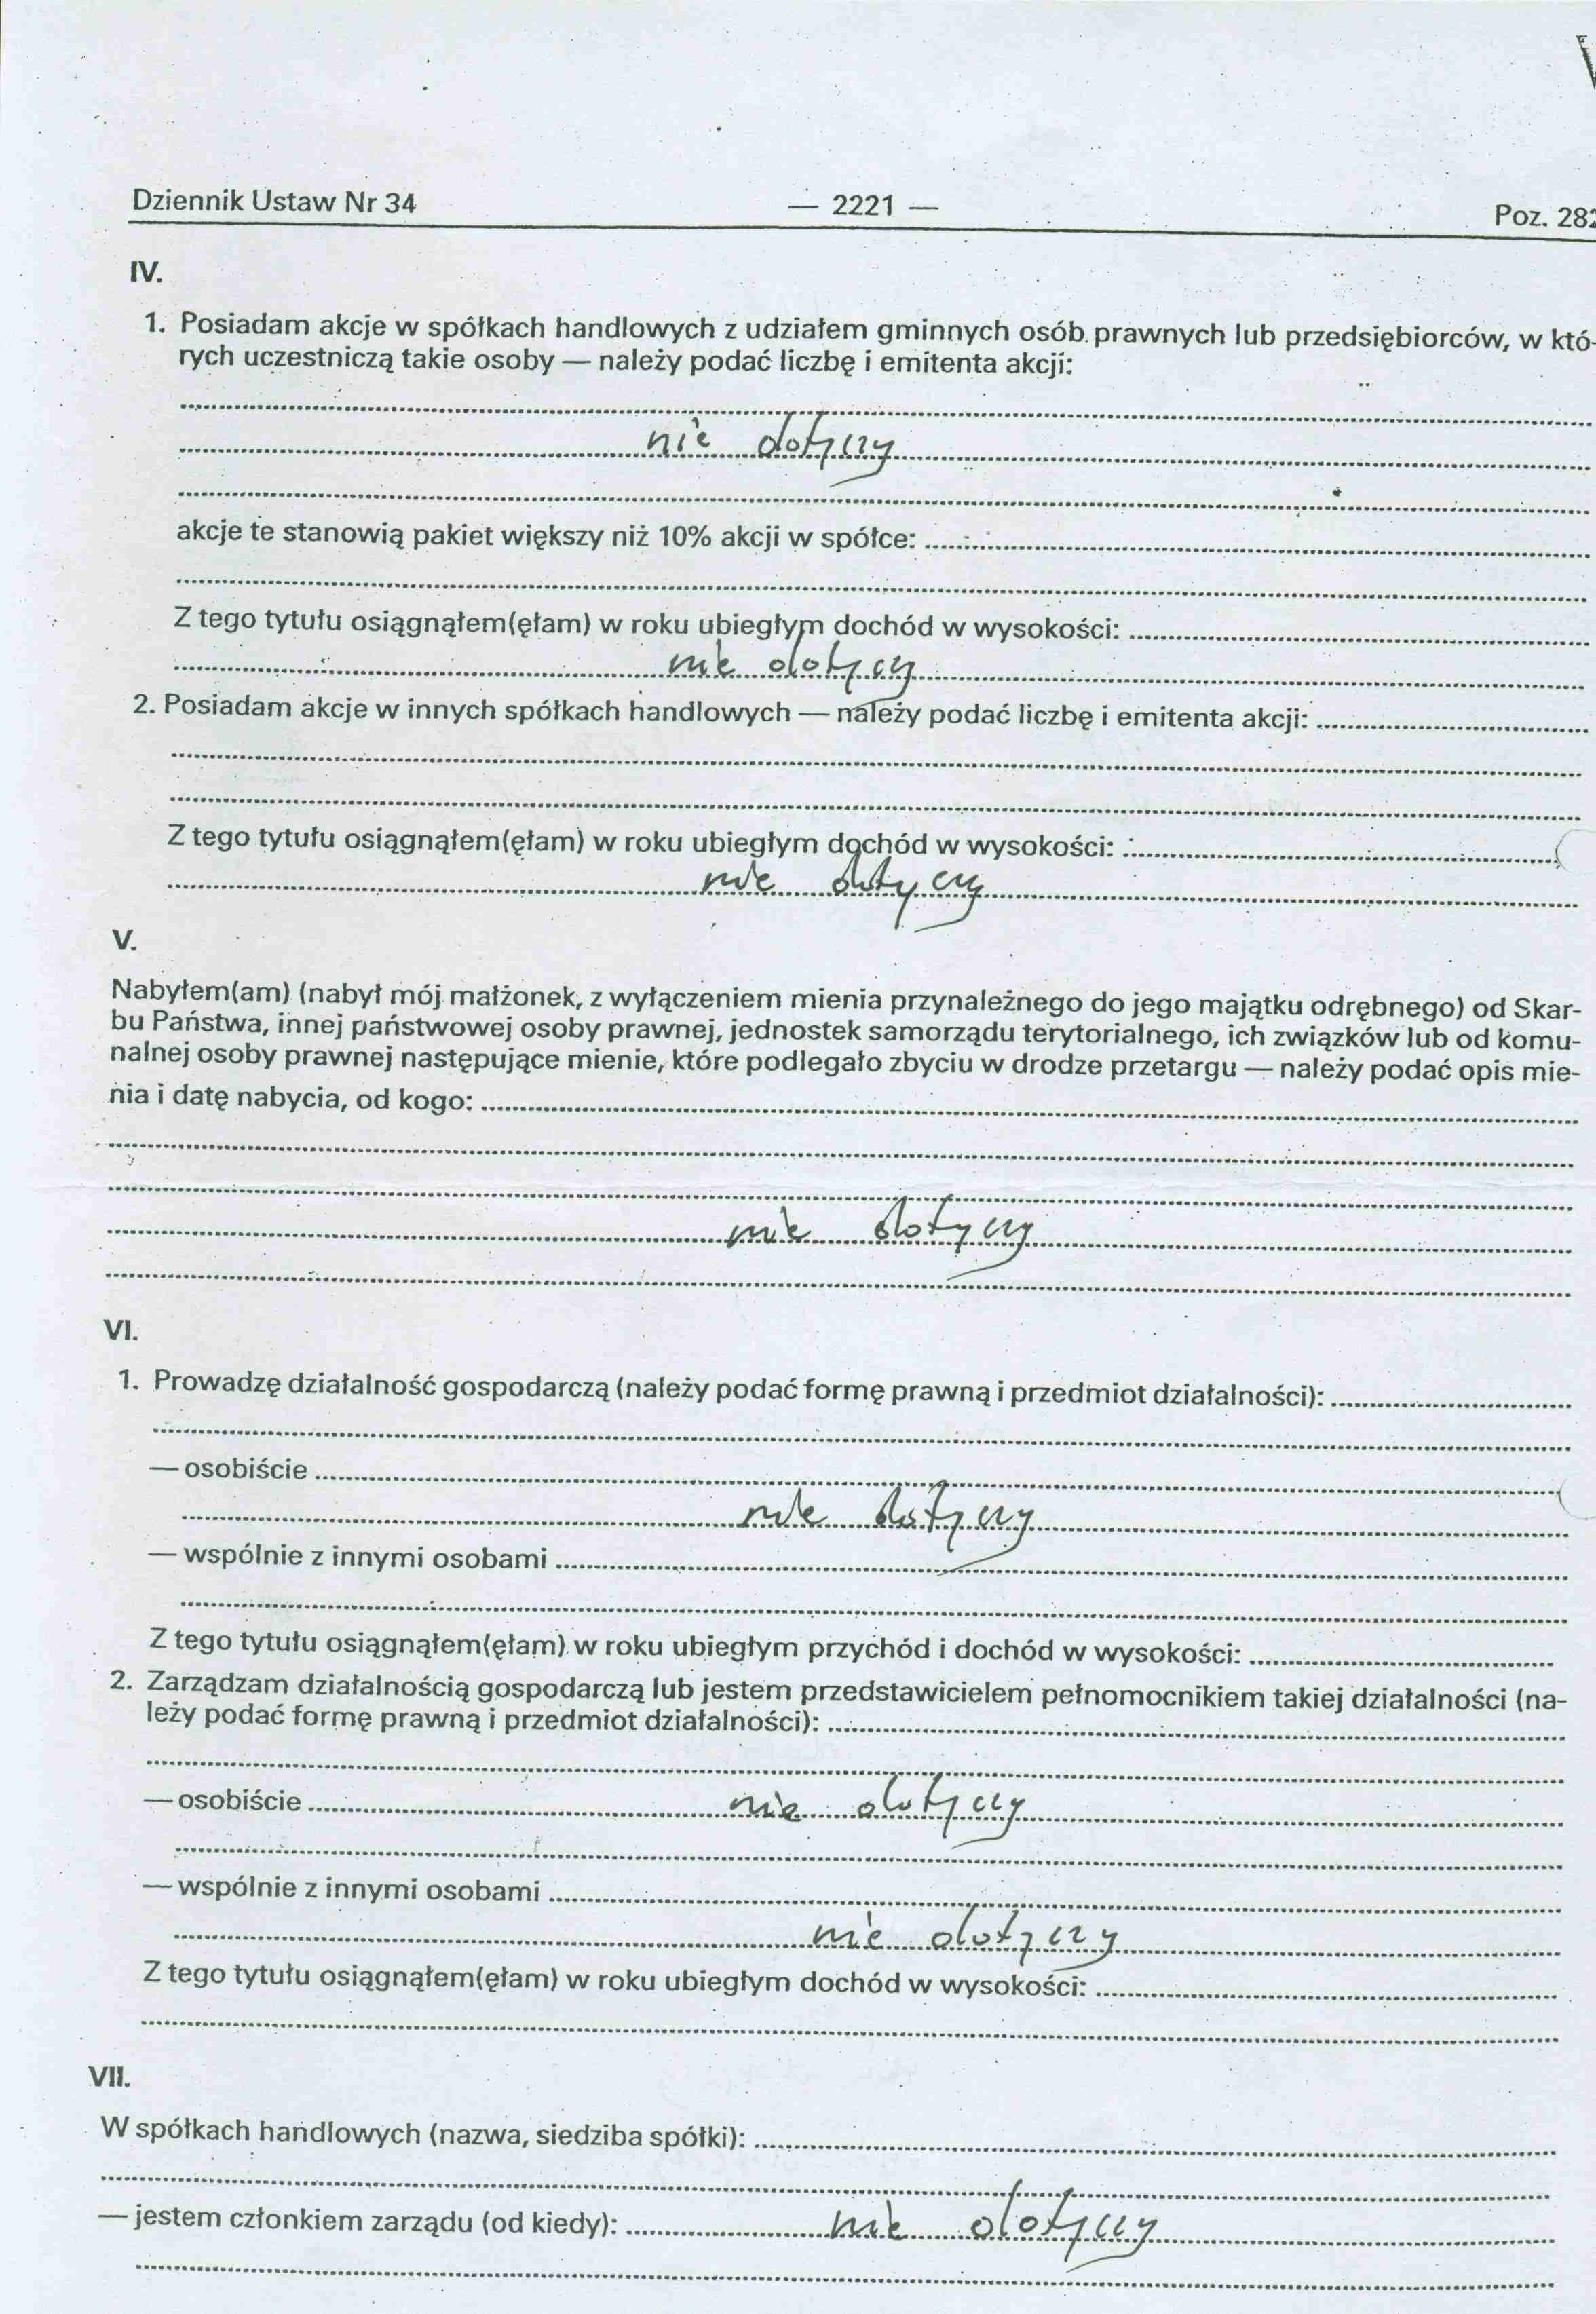 Dziennik Ustaw Nr 34 — 2221 — Poz. 282
IV.
1. Posiadam akcje w spółkach handlowych z udziałem gminnych osób prawnych lub przedsiębiorców, w któ-
rych uczestniczą takie osoby — należy podać liczbę i emitenta akcji:
nie dotyczy
akcje te stanowią pakiet większy niż 10% akcji w spółce:
Z tego tytułu osiągnąłem(ęłam) w roku ubiegłym dochód w wysokości:
nie dotyczy
2. Posiadam akcje w innych spółkach handlowych — należy podać liczbę i emitenta akcji:
Z tego tytułu osiągnąłem(ęłam) w roku ubiegłym dochód w wysokości:
nie dotyczy
V.
Nabyłem(am) (nabył mój małżonek, z wyłączeniem mienia przynależnego do jego majątku odrębnego) od Skar-
bu Państwa, innej państwowej osoby prawnej, jednostek samorządu terytorialnego, ich związków lub od komu-
nalnej osoby prawnej następujące mienie, które podlegało zbyciu w drodze przetargu — należy podać opis mie-
nia i datę nabycia, od kogo:
nie dotyczy
VI.
1. Prowadzę działalność gospodarczą (należy podać formę prawną i przedmiot działalności):
— osobiście
nie dotyczy
— wspólnie z innymi osobami
Z tego tytułu osiągnąłem(ęłam) w roku ubiegłym przychód i dochód w wysokości:
2. Zarządzam działalnością gospodarczą lub jestem przedstawicielem pełnomocnikiem takiej działalności (na-
leży podać formę prawną i przedmiot działalności):
— osobiście nie dotyczy
— wspólnie z innymi osobami
nie dotyczy
Z tego tytułu osiągnąłem(ęłam) w roku ubiegłym dochód w wysokości:
VII.
W spółkach handlowych (nazwa, siedziba spółki):
— jestem członkiem zarządu (od kiedy): nie dotyczy